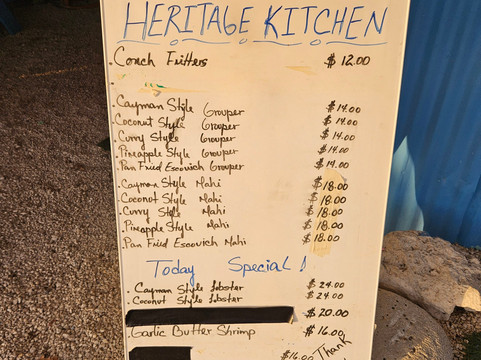 HERITAGE KITCHEN
. Conch Fritters $ 12.00
.
. Cayman Style Grouper $ 14.00
. Coconut Style Grouper $ 14.00
. Curry Style Grouper $ 14.00
. Pineapple Style Grouper $ 14.00
. Pan Fried Escovich Grouper $ 14.00
. Cayman Style Mahi $ 18.00
. Coconut Style Mahi $ 18.00
. Curry Style Mahi $ 18.00
. Pineapple Style Mahi $ 18.00
. Pan Fried Escovich Mahi $ 18.00
Today Special !
. Cayman Style Lobster $ 24.00
. Coconut Style Lobster $ 24.00
$ 20.00
. Garlic Butter Shrimp $ 16.00
$16.00 Thank